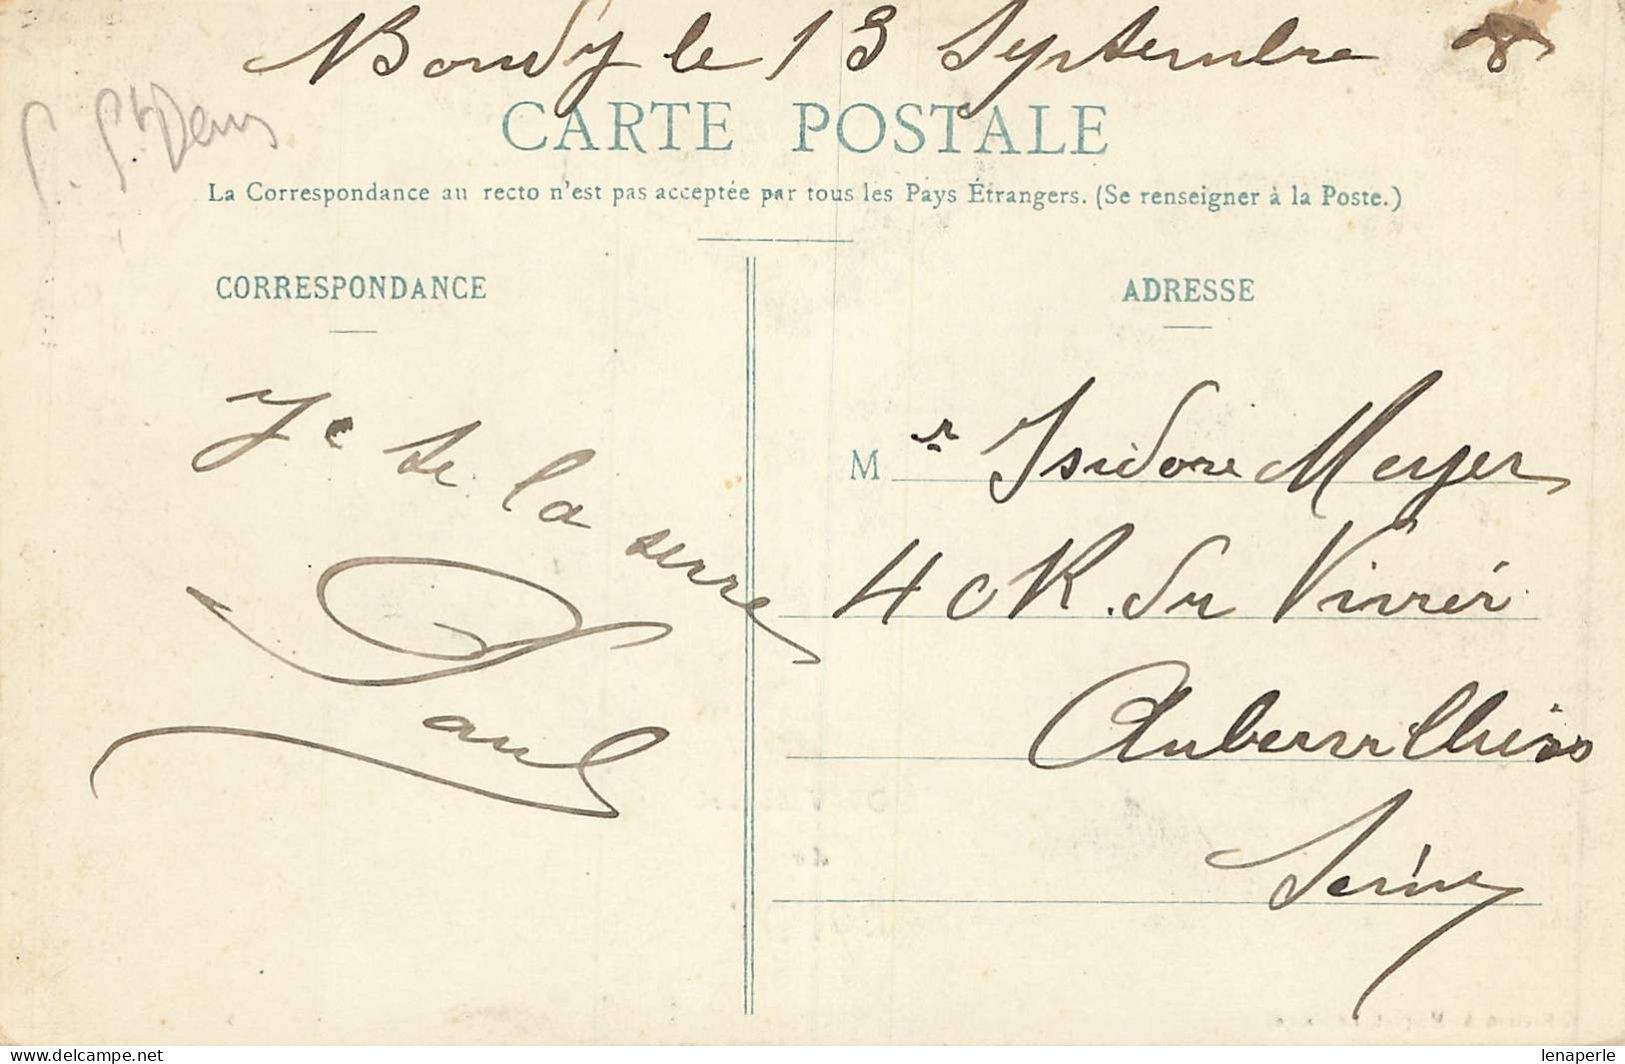 Bondy le 13 Septembre 
P. St Denis
CARTE POSTALE
La Correspondance au recto n'est pas acceptée par tous les Pays Étrangers. (Se renseigner à la Poste.)
CORRESPONDANCE
Je te la serre
Paul
ADRESSE
M r Isidore Meyer
40 R. du Vivier
Aubervilliers
Seine
lenaperle